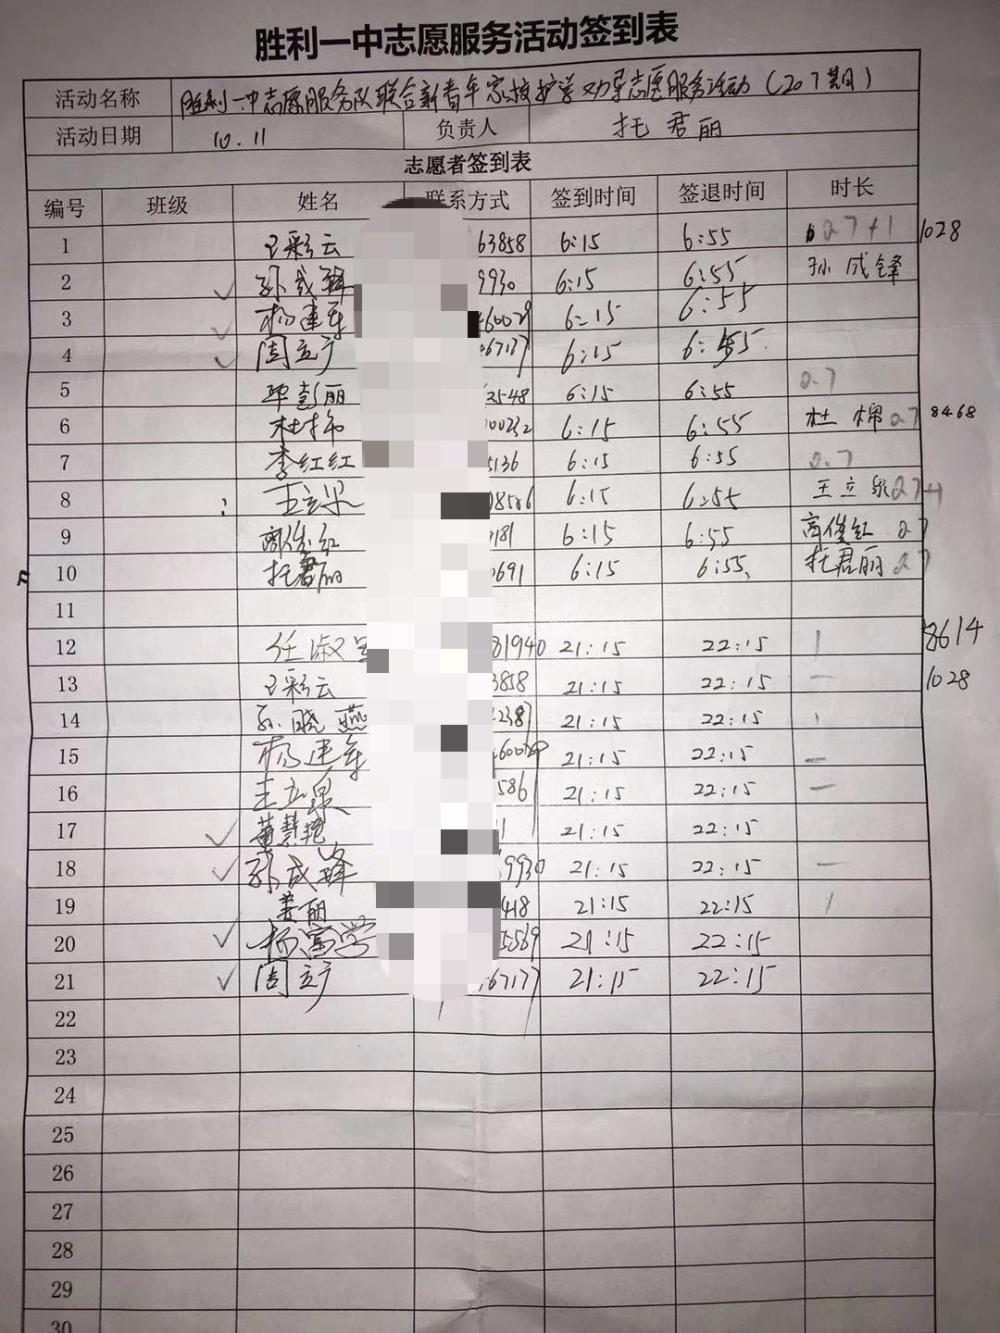 胜利一中志愿服务活动签到表
活动名称 胜利一中志愿服务队联合新青年家校护学劝导志愿服务活动（207期）
活动日期 10.11 负责人 托君丽
志愿者签到表
编号 班级 姓名 联系方式 签到时间 签退时间 时长
1 王彩云 63858 6:15 6:55 0.7+1 1028
2 孙成锋 9930 6:15 6:55 孙成锋
3 杨建军 60029 6:15 6:55
4 周立广 67177 6:15 6:55
5 毕彭丽 2548 6:15 6:55 0.7
6 杜棉 00232 6:15 6:55 杜棉 0.7 8468
7 李红红 5136 6:15 6:55 0.7
8 王立泉 6:15 6:55 王立泉 0.7+1
9 高俊红 0181 6:15 6:55 高俊红 0.7
10 托君丽 0691 6:15 6:55 托君丽 0.7
11
12 任淑 81940 21:15 22:15 1 8614
13 王彩云 3858 21:15 22:15 一 1028
14 孙晓燕 2387 21:15 22:15 1
15 杨建军 60029 21:15 22:15 一
16 王立泉 5861 21:15 22:15 一
17 董慧艳 21:15 22:15
18 孙成锋 9930 21:15 22:15 一
19 姜丽 418 21:15 22:15 1
20 杨富学 5569 21:15 22:15
21 周立广 67177 21:15 22:15
22
23
24
25
26
27
28
29
30